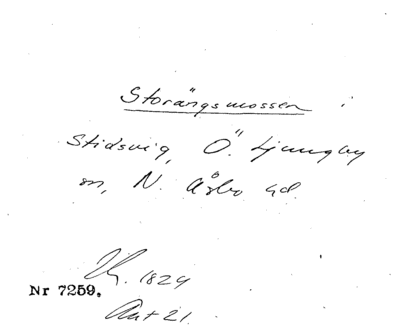 Storängsmossen i
Stidsvig, Ö. Ljungby
sn, N. Åsbo hd.
1824
Nr 7259.
Akt 21